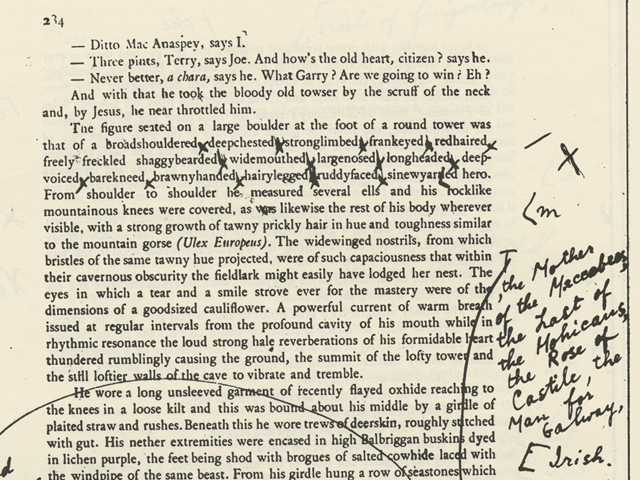 234
— Ditto Mac Anaspey, says I.
— Three pints, Terry, says Joe. And how's the old heart, citizen? says he.
— Never better, a chara, says he. What Garry? Are we going to win? Eh?
And with that he took the bloody old towser by the scruff of the neck
and, by Jesus, he near throttled him.
The figure seated on a large boulder at the foot of a round tower was
that of a broadshouldered deepchested stronglimbed frankeyed redhaired
freely freckled shaggybearded widemouthed largenosed longheaded deep-
voiced barekneed brawnyhanded hairylegged ruddyfaced sinewyarmed hero.
From shoulder to shoulder he measured several ells and his rocklike
mountainous knees were covered, as was likewise the rest of his body wherever
visible, with a strong growth of tawny prickly hair in hue and toughness similar
to the mountain gorse (Ulex Europeus). The widewinged nostrils, from which
bristles of the same tawny hue projected, were of such capaciousness that within
their cavernous obscurity the fieldlark might easily have lodged her nest. The
eyes in which a tear and a smile strove ever for the mastery were of the
dimensions of a goodsized cauliflower. A powerful current of warm breath
issued at regular intervals from the profound cavity of his mouth while in
rhythmic resonance the loud strong hale reverberations of his formidable heart
thundered rumblingly causing the ground, the summit of the lofty tower and
the still loftier walls of the cave to vibrate and tremble.
He wore a long unsleeved garment of recently flayed oxhide reaching to
the knees in a loose kilt and this was bound about his middle by a girdle of
plaited straw and rushes. Beneath this he wore trews of deerskin, roughly stitched
with gut. His nether extremities were encased in high Balbriggan buskins dyed
in lichen purple, the feet being shod with brogues of salted cowhide laced with
the windpipe of the same beast. From his girdle hung a row of seastones which
m
, the Mother
of the Maccabees,
the Last of
the Mohicans,
the Rose of
Castile, the
Man for
Galway,
[ Irish.
d